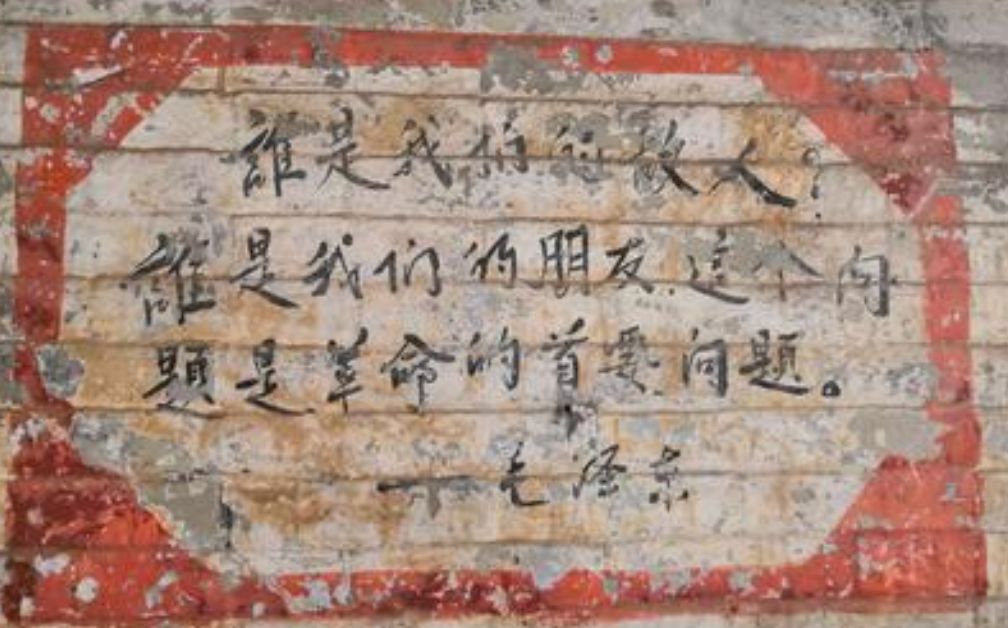 誰是我们的敌人?
誰是我们的朋友这个问
题是革命的首要问题。
——毛泽东